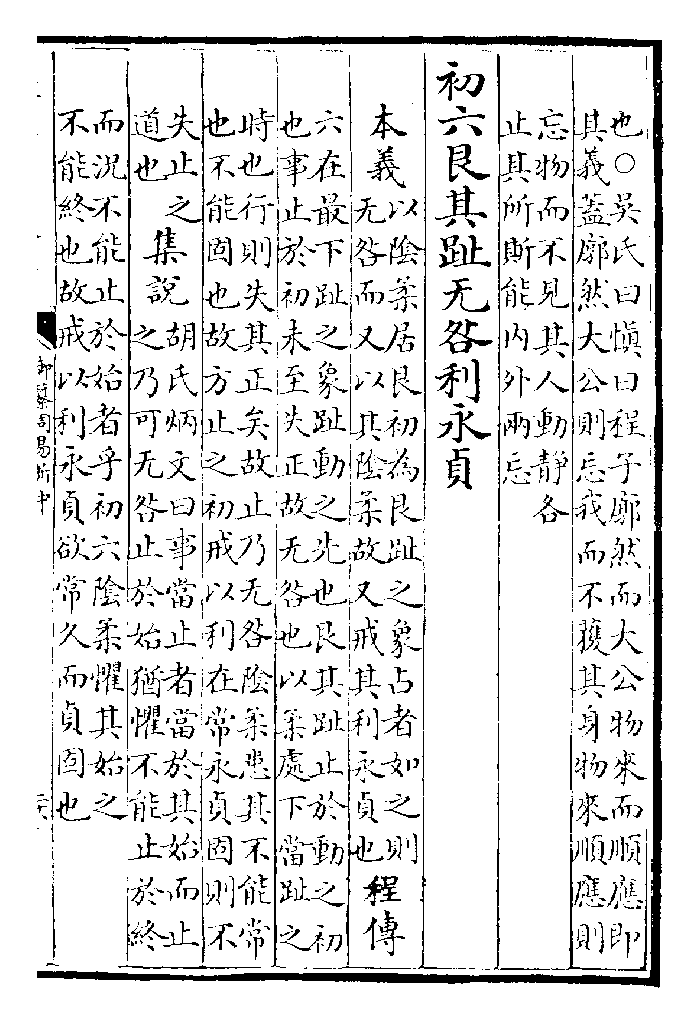 也○吳氏曰愼曰程子廓然而大公物來而順應即
其義蓋廓然大公則忘我而不獲其身物來順應則
忘物而不見其人動靜各
止其所斯能内外兩忘
初六艮其趾无咎利永貞
本義
以陰柔居艮初為艮趾之象占者如之則
无咎而又以其陰柔故又戒其利永貞也
程傳
六在最下趾之象趾動之先也艮其趾止於動之初
也事止於初未至失正故无咎也以柔處下當趾之
時也行則失其正矣故止乃无咎陰柔患其不能常
也不能固也故方止之初戒以利在常永貞固則不
失止之
道也
集說
胡氏炳文曰事當止者當於其始而止
之乃可无咎止於始猶懼不能止於終
而況不能止於始者乎初六陰柔懼其始之
不能終也故戒以利永貞欲常久而貞固也
御纂周易折中